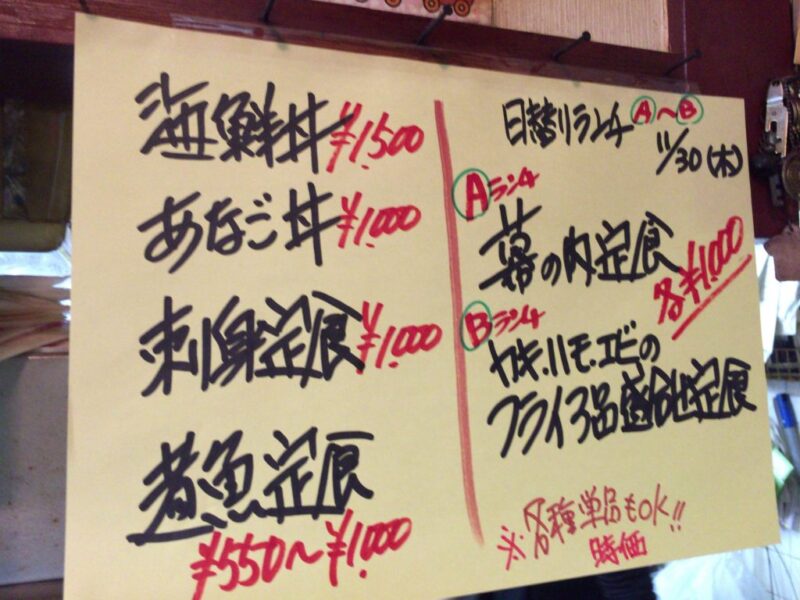 海鮮丼 ¥1,500
あなご丼 ¥1,000
刺身定食 ¥1,000
煮魚定食
¥550〜¥1,000
日替りランチ A〜B
11/30(木)
Aランチ
幕の内定食
各¥1,000
Bランチ
カキ.ハモ.エビの
フライ3品盛合せ定食
※各種単品もOK!!
時価